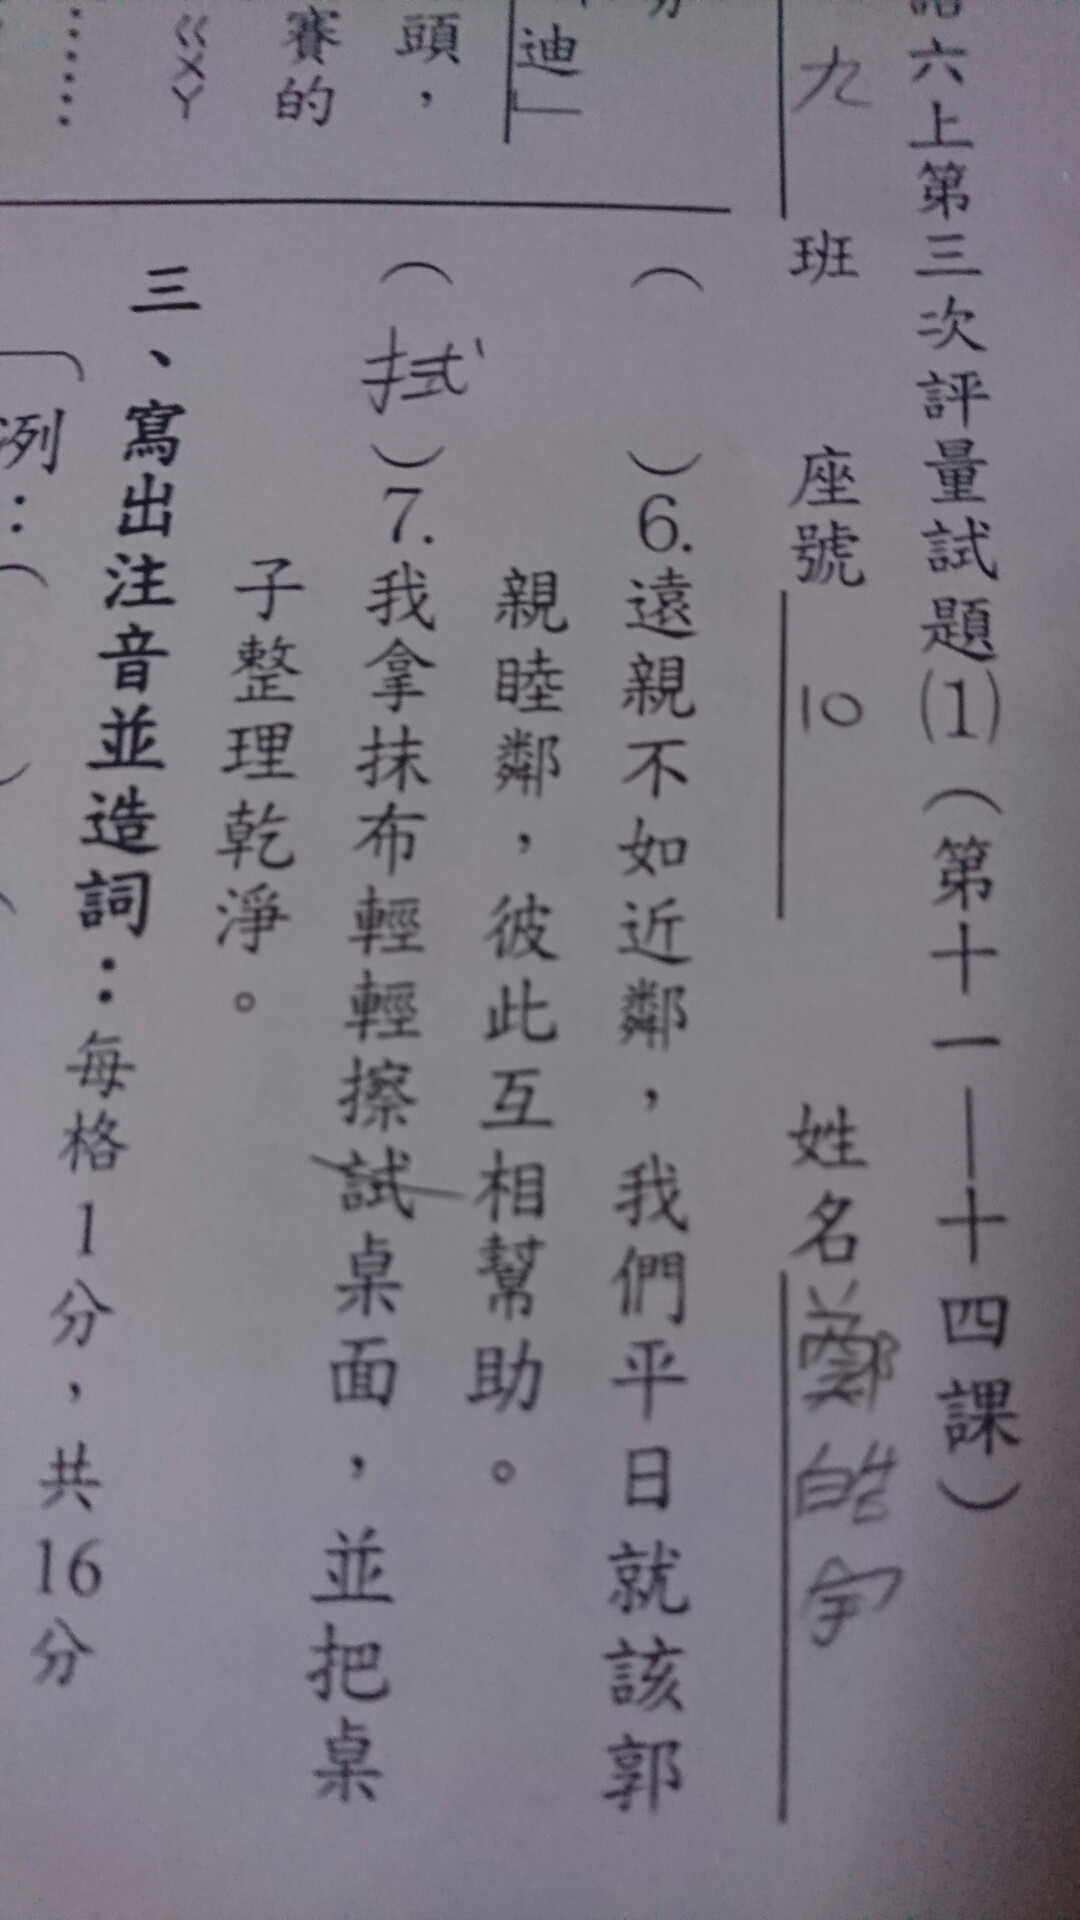 語六上第三次評量試題(1)（第十一—十四課）
九 班 座號 10 姓名 鄭皓宇
迪」
頭，
賽的
ㄍㄨㄚ
……
（ ）6.遠親不如近鄰，我們平日就該郭
親睦鄰，彼此互相幫助。
（拭）7.我拿抹布輕輕擦試桌面，並把桌
子整理乾淨。
三、寫出注音並造詞：每格1分，共16分
例：（ ）